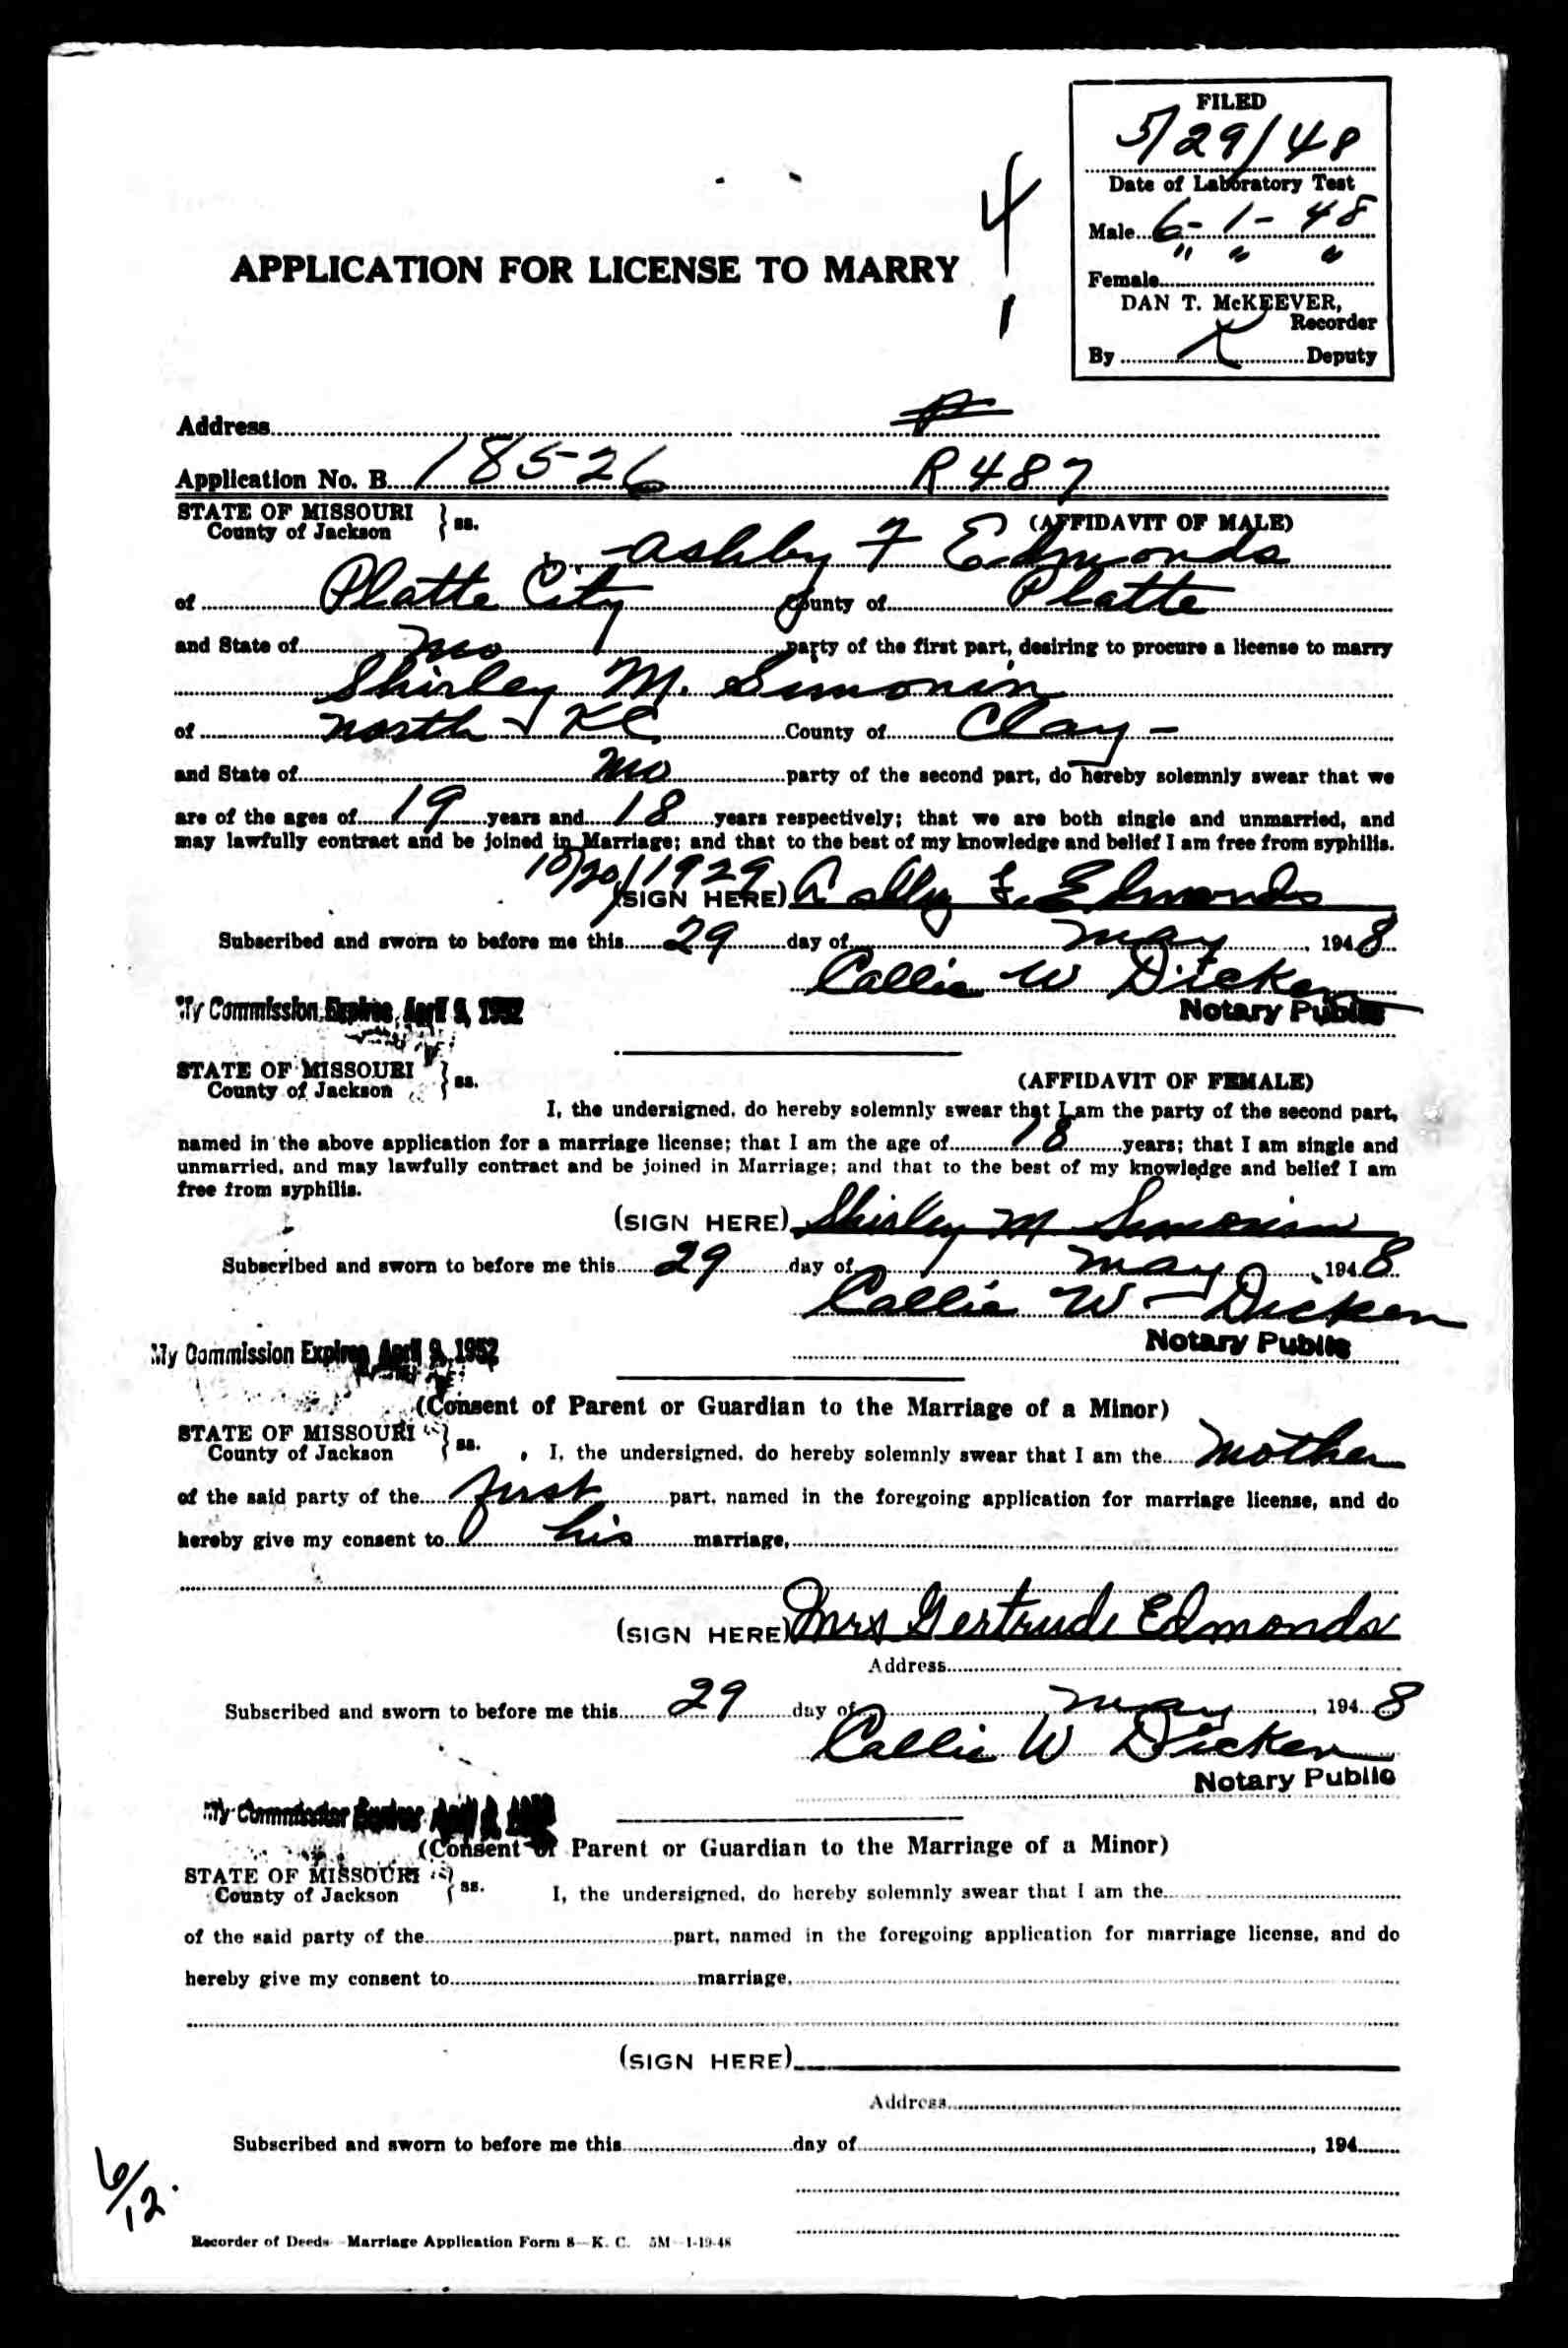 FILED
5/29/48
Date of Laboratory Test
Male 6-1-48
Female " " "
DAN T. McKEEVER,
Recorder
By Deputy
4
APPLICATION FOR LICENSE TO MARRY
Address
Application No. B 18526 R 487
STATE OF MISSOURI
County of Jackson } ss. (AFFIDAVIT OF MALE)
Ashby F Edmonds
of Platte City County of Platte
and State of Mo party of the first part, desiring to procure a license to marry
Shirley M. Simonin
of North KC County of Clay -
and State of Mo party of the second part, do hereby solemnly swear that we
are of the ages of 19 years and 18 years respectively; that we are both single and unmarried, and
may lawfully contract and be joined in Marriage; and that to the best of my knowledge and belief I am free from syphilis.
10/20/1929
(SIGN HERE) Ashby F. Edmonds
Subscribed and sworn to before me this 29 day of May, 1948
Callie W Dicken
My Commission Expires April 9, 1952 Notary Public
STATE OF MISSOURI
County of Jackson } ss. (AFFIDAVIT OF FEMALE)
I, the undersigned, do hereby solemnly swear that I am the party of the second part,
named in the above application for a marriage license; that I am the age of 18 years; that I am single and
unmarried, and may lawfully contract and be joined in Marriage; and that to the best of my knowledge and belief I am
free from syphilis.
(SIGN HERE) Shirley M Simonin
Subscribed and sworn to before me this 29 day of May, 1948
Callie W Dicken
My Commission Expires April 9, 1952 Notary Public
(Consent of Parent or Guardian to the Marriage of a Minor)
STATE OF MISSOURI
County of Jackson } ss. I, the undersigned, do hereby solemnly swear that I am the Mother
of the said party of the first part, named in the foregoing application for marriage license, and do
hereby give my consent to his marriage,
(SIGN HERE) Mrs Gertrude Edmonds
Address
Subscribed and sworn to before me this 29 day of May, 1948
Callie W Dicken
Notary Public
My Commission Expires April
(Consent of Parent or Guardian to the Marriage of a Minor)
STATE OF MISSOURI
County of Jackson } ss. I, the undersigned, do hereby solemnly swear that I am the
of the said party of the part, named in the foregoing application for marriage license, and do
hereby give my consent to marriage,
(SIGN HERE)
Address
Subscribed and sworn to before me this day of , 194
6/12.
Recorder of Deeds--Marriage Application Form 8--K. C. 5M--1-19-48